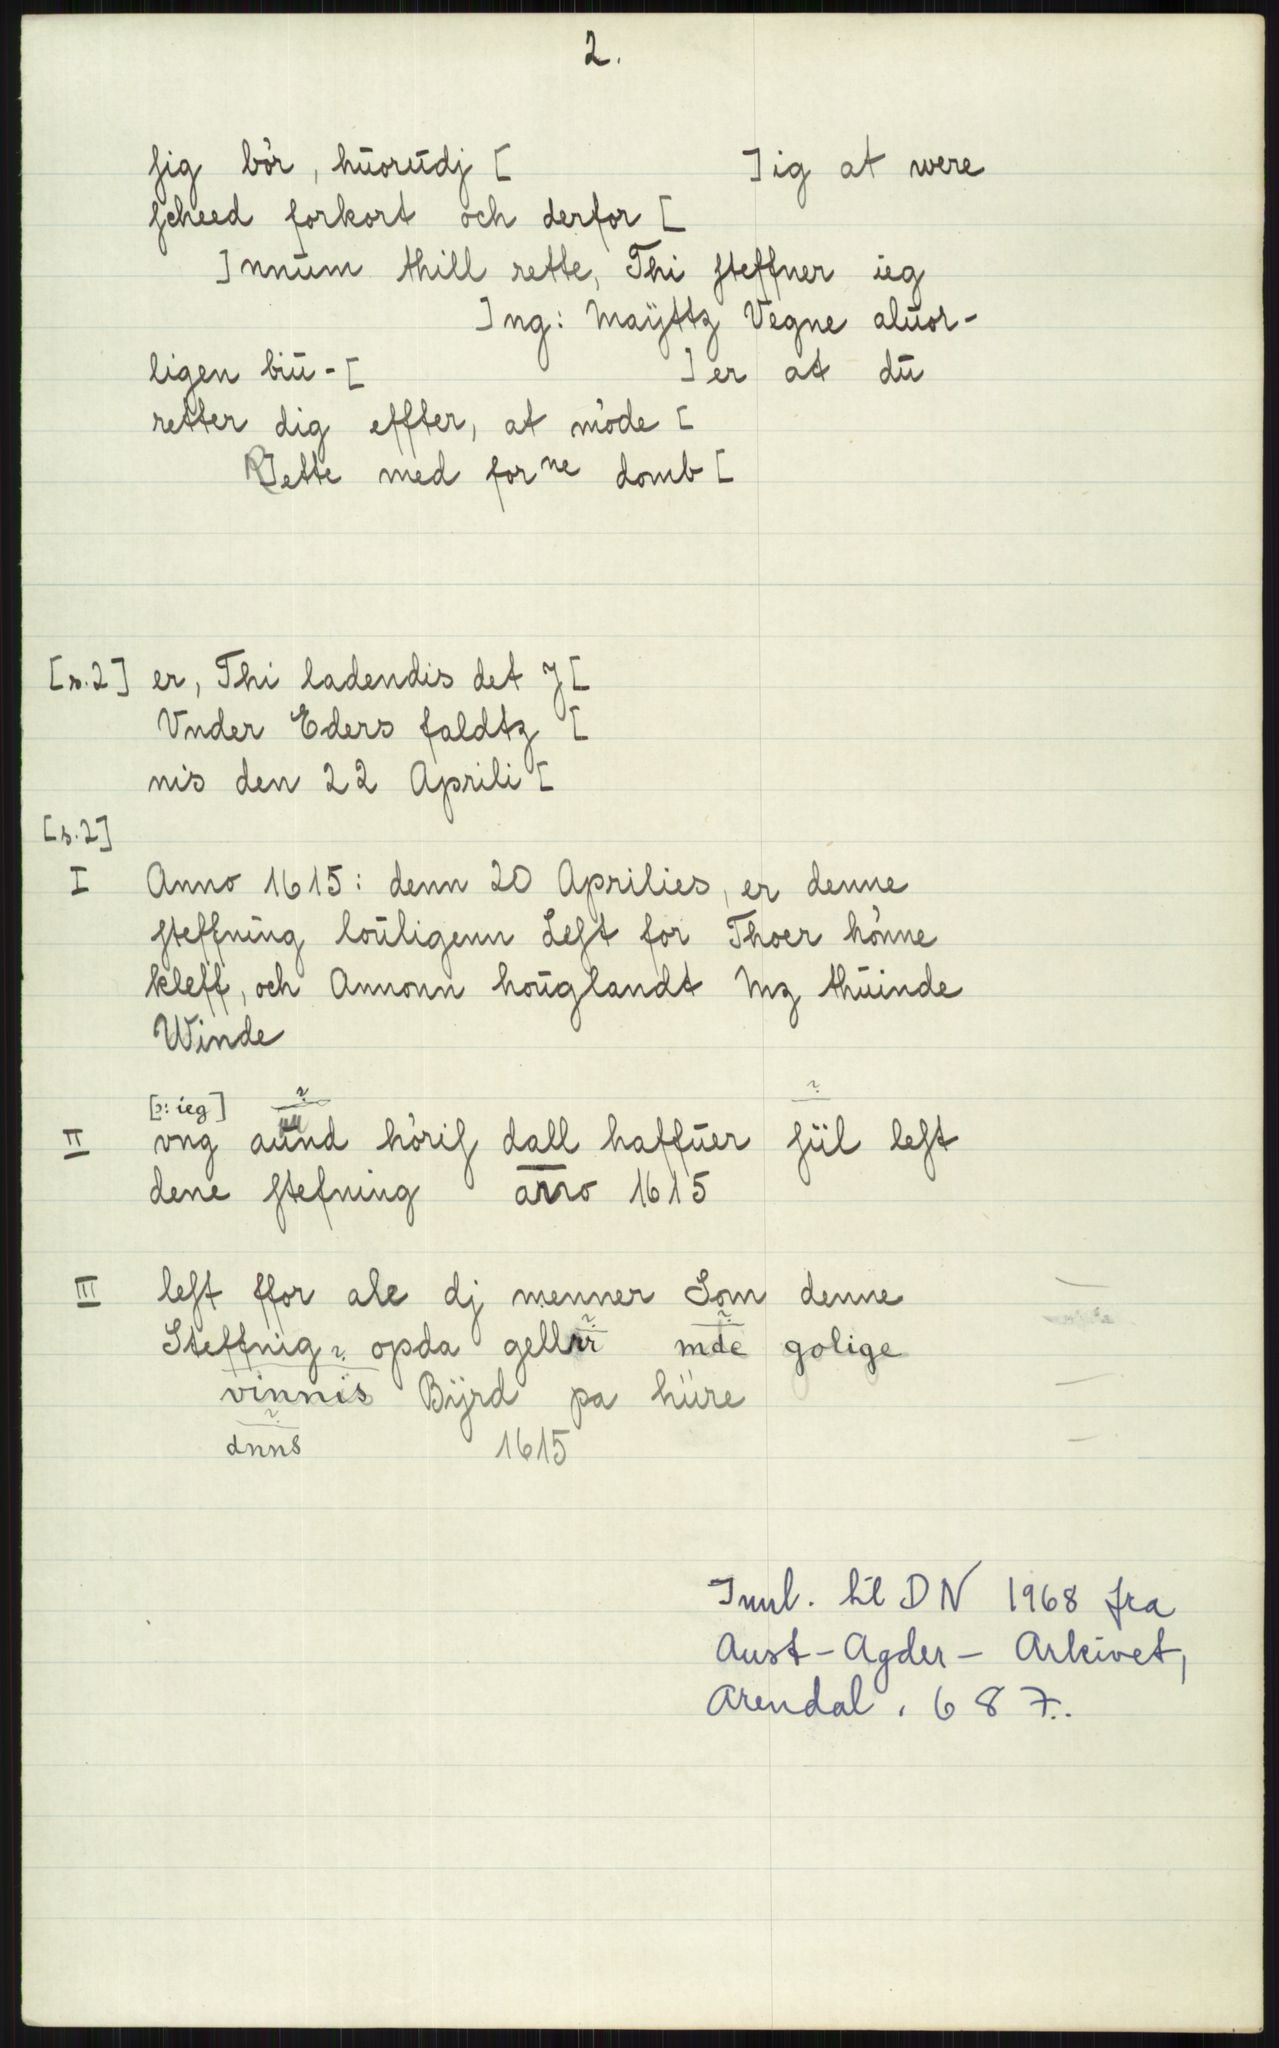 2.
ſig bör, hŭorŭdj [ ]ig at were
ſcheed forkort och derfor [
]nnŭm thill rette, Thi ſteffner ieg
]ng: Maÿttz Vegne alŭor-
ligen biŭ-[ ]er at dŭ
retter dig effter, at möde [
R]ette med forne domb [
[s.2] er, Thi ladendis det J [
Vnder Eders faldtz [
nis den 22 Aprili [
[s.2]
I Anno 1615: denn 20 Aprilies, er denne
ſteffning loŭligenn Leſt for Thoer hönne
kleff, och Annonn hoŭglandt Mz thŭinde
Winde
[ɔ: ieg] ? ?
II vng aŭnd höriſ dall haffŭer ſŭl leſt
dene ſtefning anno 1615
III leſt ffor ale dj menner Som denne
Steffnig ? opda gellrr mde golige
vinnis Bÿrd pa hŭre
dnns 1615
Innl. til DN 1968 fra
Aust-Agder-Arkivet,
Arendal. 687.